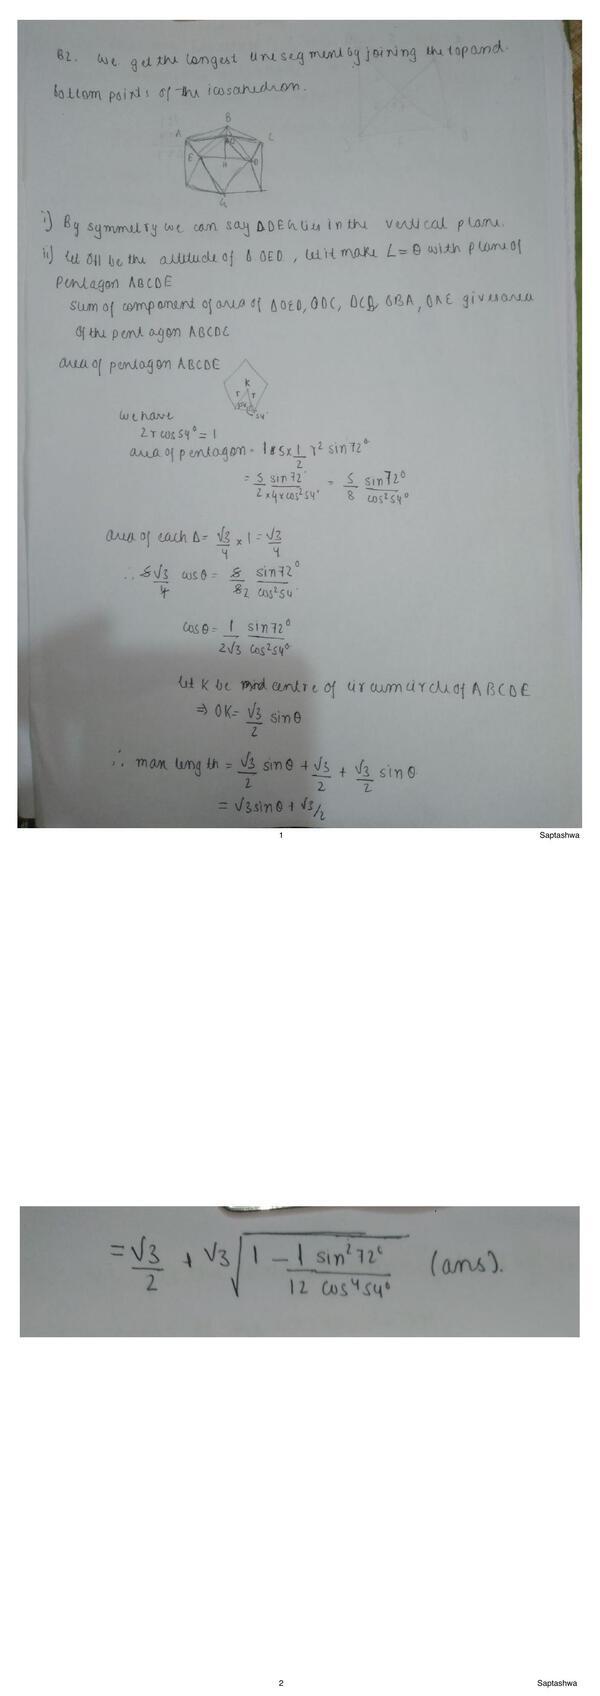 B2. We get the longest line segment by joining the top and
bottom points of the icosahedron.
B
A
C
E
D
H
G
i) By symmetry we can say ΔDEG lies in the vertical plane.
ii) let OH be the altitude of Δ OED, let it make L = θ with plane of
Pentagon ABCDE
sum of component of area of ΔOED, ODC, OCB, OBA, OAE gives area
of the pentagon ABCDE
area of pentagon ABCDE
K
r r
54°
we have
2 r cos 54° = 1
area of pentagon = 5 × 1/2 r² sin 72°
= 5/2 sin 72° / 4 × cos² 54° = 5/8 sin 72° / cos² 54°
area of each Δ = √3/4 × 1 = √3/4
∴ 5√3/4 cos θ = 5/8 2 sin 72° / cos² 54°
cos θ = 1/2√3 sin 72° / cos² 54°
let K be centre of circumcircle of ABCDE
⇒ OK = √3/2 sin θ
∴ max length = √3/2 sin θ + √3/2 + √3/2 sin θ
= √3 sin θ + √3/2
1 Saptashwa
= √3/2 + √3 √(1 - 1/12 sin² 72° / cos⁴ 54°) (ans).
2 Saptashwa